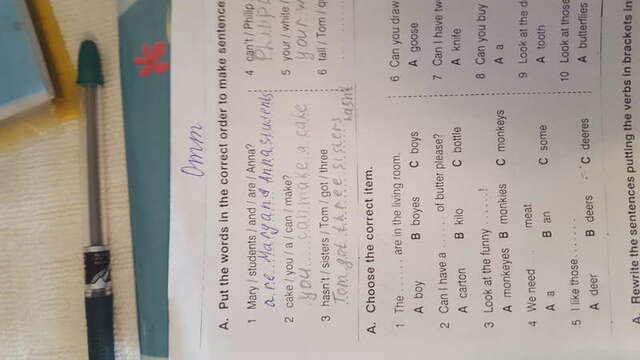 Omm
A. Put the words in the correct order to make sentence
1 Mary / students / and / are / Anna?
are Mary and Anna students
2 cake / you / a / can / make?
you can make a cake
3 hasn't / sisters / Tom / got / three
Tom got three sisters
hasn't
4 can't / Philip
Philip
5 your / white /
your w
6 tall / Tom / q
A. Choose the correct item.
1 The ...... are in the living room.
A boy B boyes C boys
2 Can I have a ...... of butter please?
A carton B kilo C bottle
3 Look at the funny ......!
A monkeyes B monkies C monkeys
4 We need meat.
A a B an C some
5 I like those .......
A deer B deers C deeres
6 Can you draw
A goose
7 Can I have tw
A knife
8 Can you buy
A a
9 Look at the d
A tooth
10 Look at those
A butterflies
A. Rewrite the sentences putting the verbs in brackets in